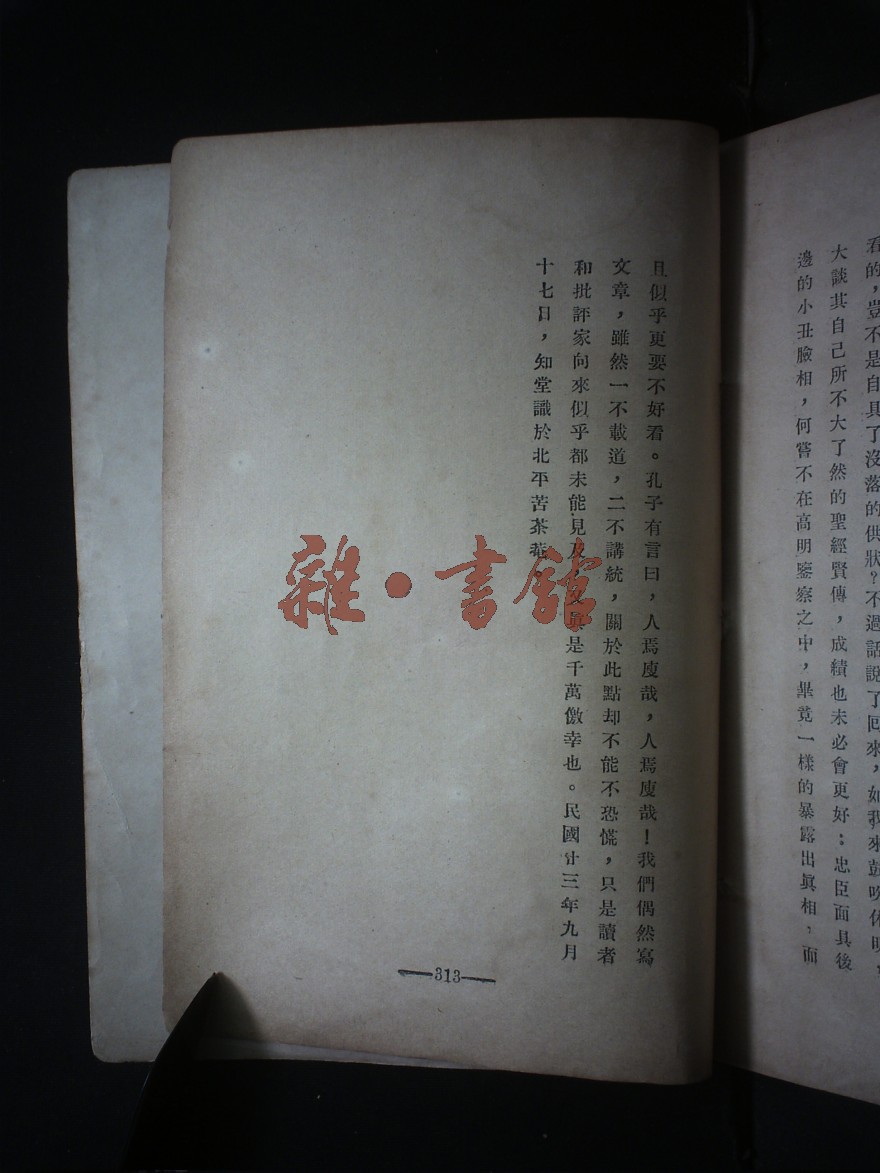 看的，豈不是自具了沒落的供狀？不過話說了回來，如我來鼓吹休明，
大談其自己所不大了然的聖經賢傳，成績也未必會更好：忠臣面具後
邊的小丑臉相，何嘗不在高明鑒察之中，畢竟一樣的暴露出眞相，而
且似乎更要不好看。孔子有言曰，人焉廋哉，人焉廋哉！我們偶然寫
文章，雖然一不載道，二不講統，關於此點却不能不恐慌，只是讀者
和批評家向來似乎都未能見及，又眞是千萬儌幸也。民國廿三年九月
十七日，知堂識於北平苦茶菴。
313
雜·書館